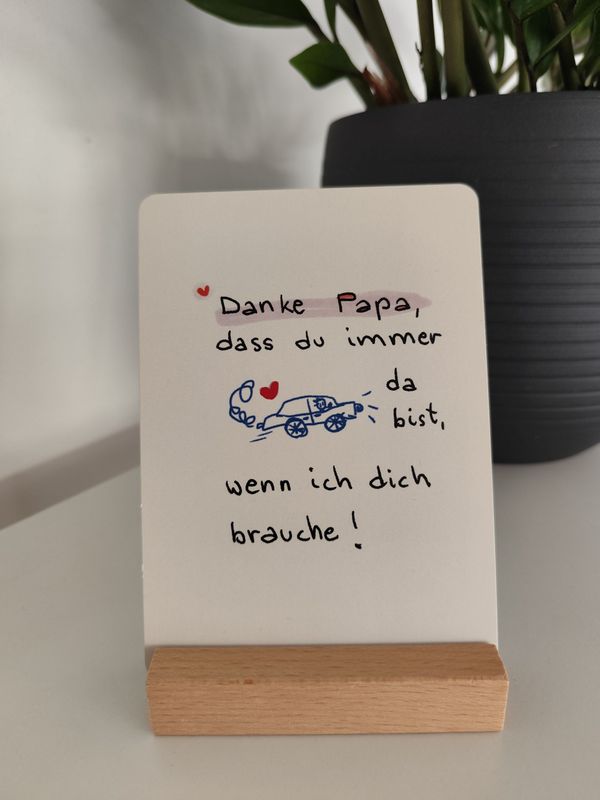 Danke Papa,
dass du immer
da
bist,
wenn ich dich
brauche!